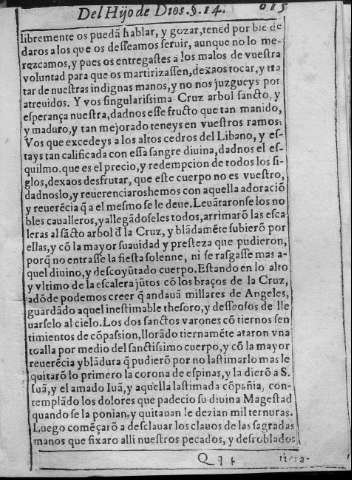 Del Hijo de Dios. §. 14. 615
libremente os puedã hablar, y gozar, tened por biẽ de
daros a los que os desseamos seruir, aunque no lo me-
rezcamos, y pues os entregastes a los malos de vuestra
voluntad para que os martirizassen, dexaos tocar, y tra
tar de nuestras indignas manos, y no nos juzgueys por
atreuidos. Y vos singularissima Cruz arbol sancto, y
esperança nuestra, dadnos esse fructo que tan manido,
y maduro, y tan mejorado teneys en vuestros ramos.
Vos que excedeys a los altos cedros del Libano, y es-
tays tan calificada con essa sangre diuina, dadnos el es-
quilmo. que es el precio, y redempcion de todos los si-
glos, dexaos desfrutar, que este cuerpo no es vuestro,
dadnoslo, y reuerenciaroshemos con aquella adoraciõ
y reuerẽcia q̃ a el mesmo se le deue. Leuãtaronse los no
bles caualleros, y allegãdoseles todos, arrimarõ las esca
leras al sãcto arbol d̃ la Cruz, y blãdamẽte subierõ por
ellas, y cõ la mayor suauidad y presteza que pudieron,
porq̃ no entrasse la fiesta solenne, ni se rasgasse mas a-
quel diuino, y descoyũtado cuerpo. Estando en lo alto
y vltimo de la escalera jũtos cõ los braços de la Cruz,
adõde podemos creer q̃ andauã millares de Angeles,
guardãdo aquel inestimable thesoro, y desseosos de lle
uarselo al cielo. Los dos sanctos varones cõ tiernos sen
timientos de cõpassion, llorãdo tiernamẽte ataron vna
toalla por medio del sanctissimo cuerpo, y cõ la mayor
reuerẽcia y blãdura q̃ pudierõ por no lastimarlo mas le
quitarõ lo primero la corona de espinas, y la dierõ a S.
Iuã, y el amado Iuã, y aquella lastimada cõpañia, con-
templãdo los dolores que padecio su diuina Magestad
quando se la ponian, y quitauan le dezian mil ternuras.
Luego começarõ a desclauar los clauos de las sagradas
manos que fixaro alli nuestros pecados, y desroblados
Qq 4